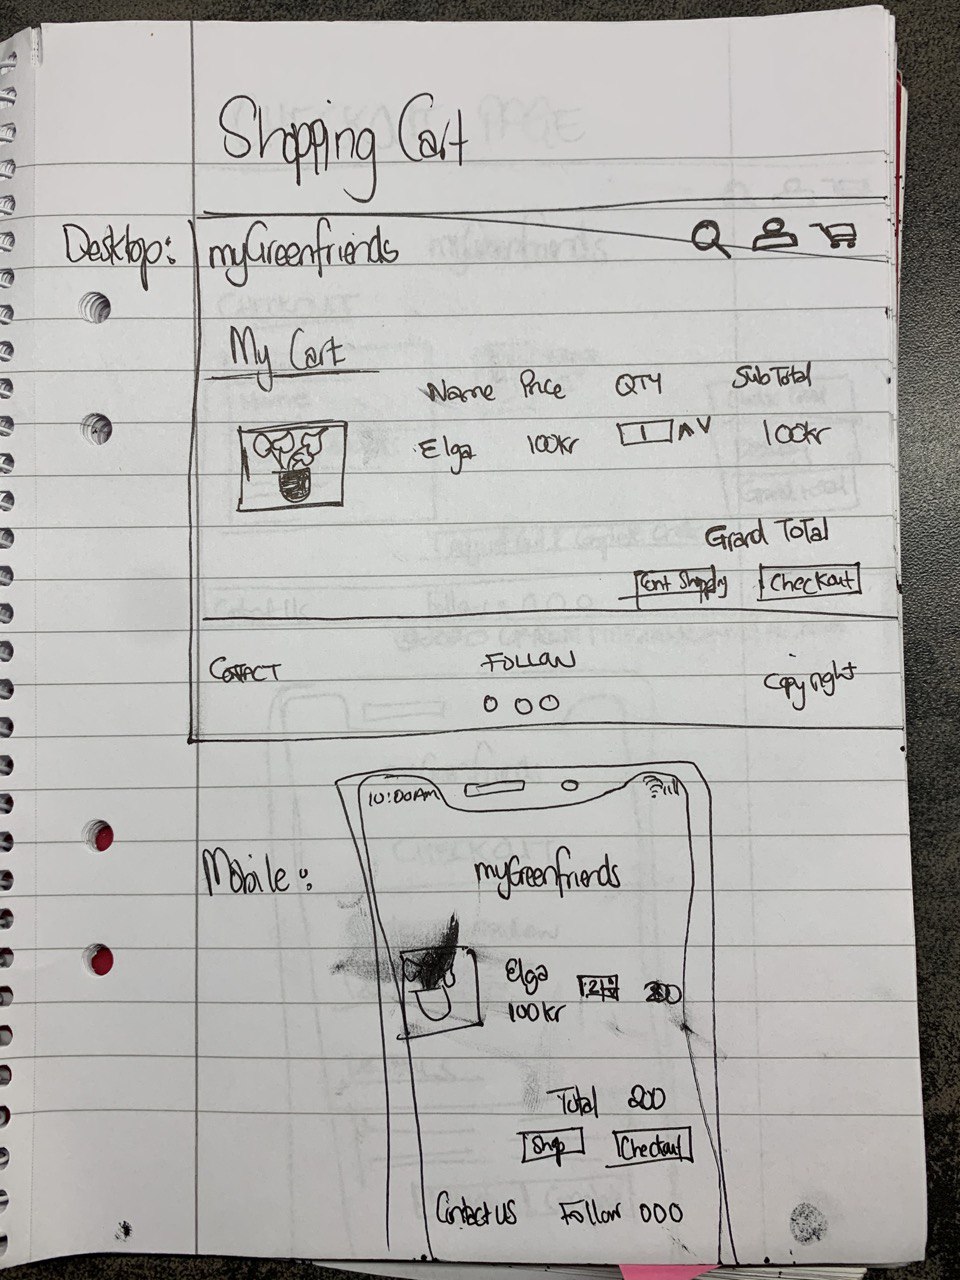 Shopping Cart
Desktop: myGreenfriends
My Cart
Name Price QTY SubTotal
Elga 100kr 1 100kr
Grand Total
Cont Shopping Checkout
CONTACT FOLLOW Copyright
10:00AM
Mobile: myGreenfriends
Elga 2
100kr
Total 200
Shop Checkout
Contact us Follow